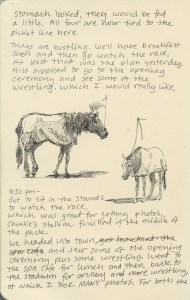 stomach looked, they would be fed
a little. All four are now tied to the
picket line here.
Things are bustling. We'll have breakfast
soon and then go watch the race.
At least that was the plan yesterday.
Also supposed to go to the opening
ceremony and see some of the
wrestling, which I would really like.
9:30 pm-
Got to sit in the stands
to watch the race,
which was great for getting photos.
stallion finished in the middle of
the pack.
We headed into town,
and saw some of the opening
ceremony plus some wrestling. Went to
the spa cafe for lunch and then back to
the stadium for archery and more wrestling
of which I took MANY photos. For both the